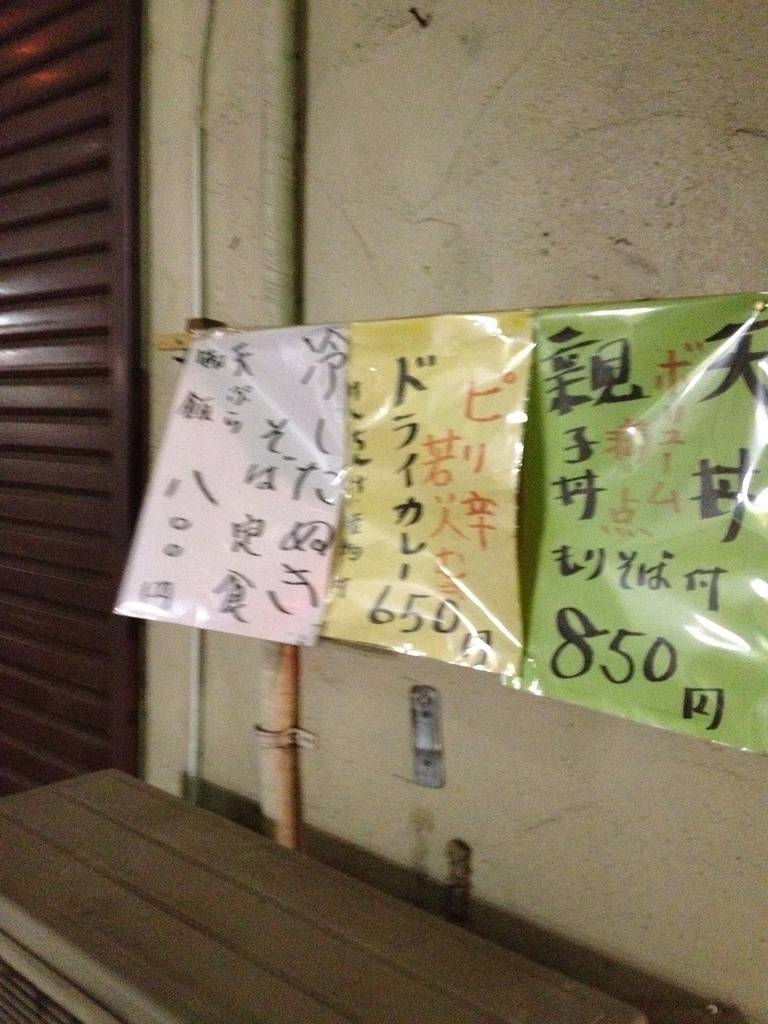 天丼
ボリューム満点
親子丼
もりそば付
850円
ピリ辛
ドライカレー
650円
冷したぬき
そば定食
天ぷら
御飯
八〇〇円